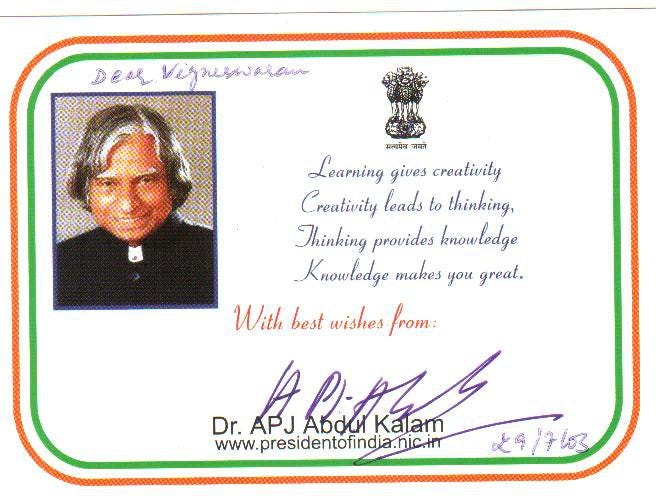 Dear Vigneswaran
सत्यमेव जयते
Learning gives creativity
Creativity leads to thinking,
Thinking provides knowledge
Knowledge makes you great.
With best wishes from:
Dr. APJ Abdul Kalam
www.presidentofindia.nic.in
29/7/03